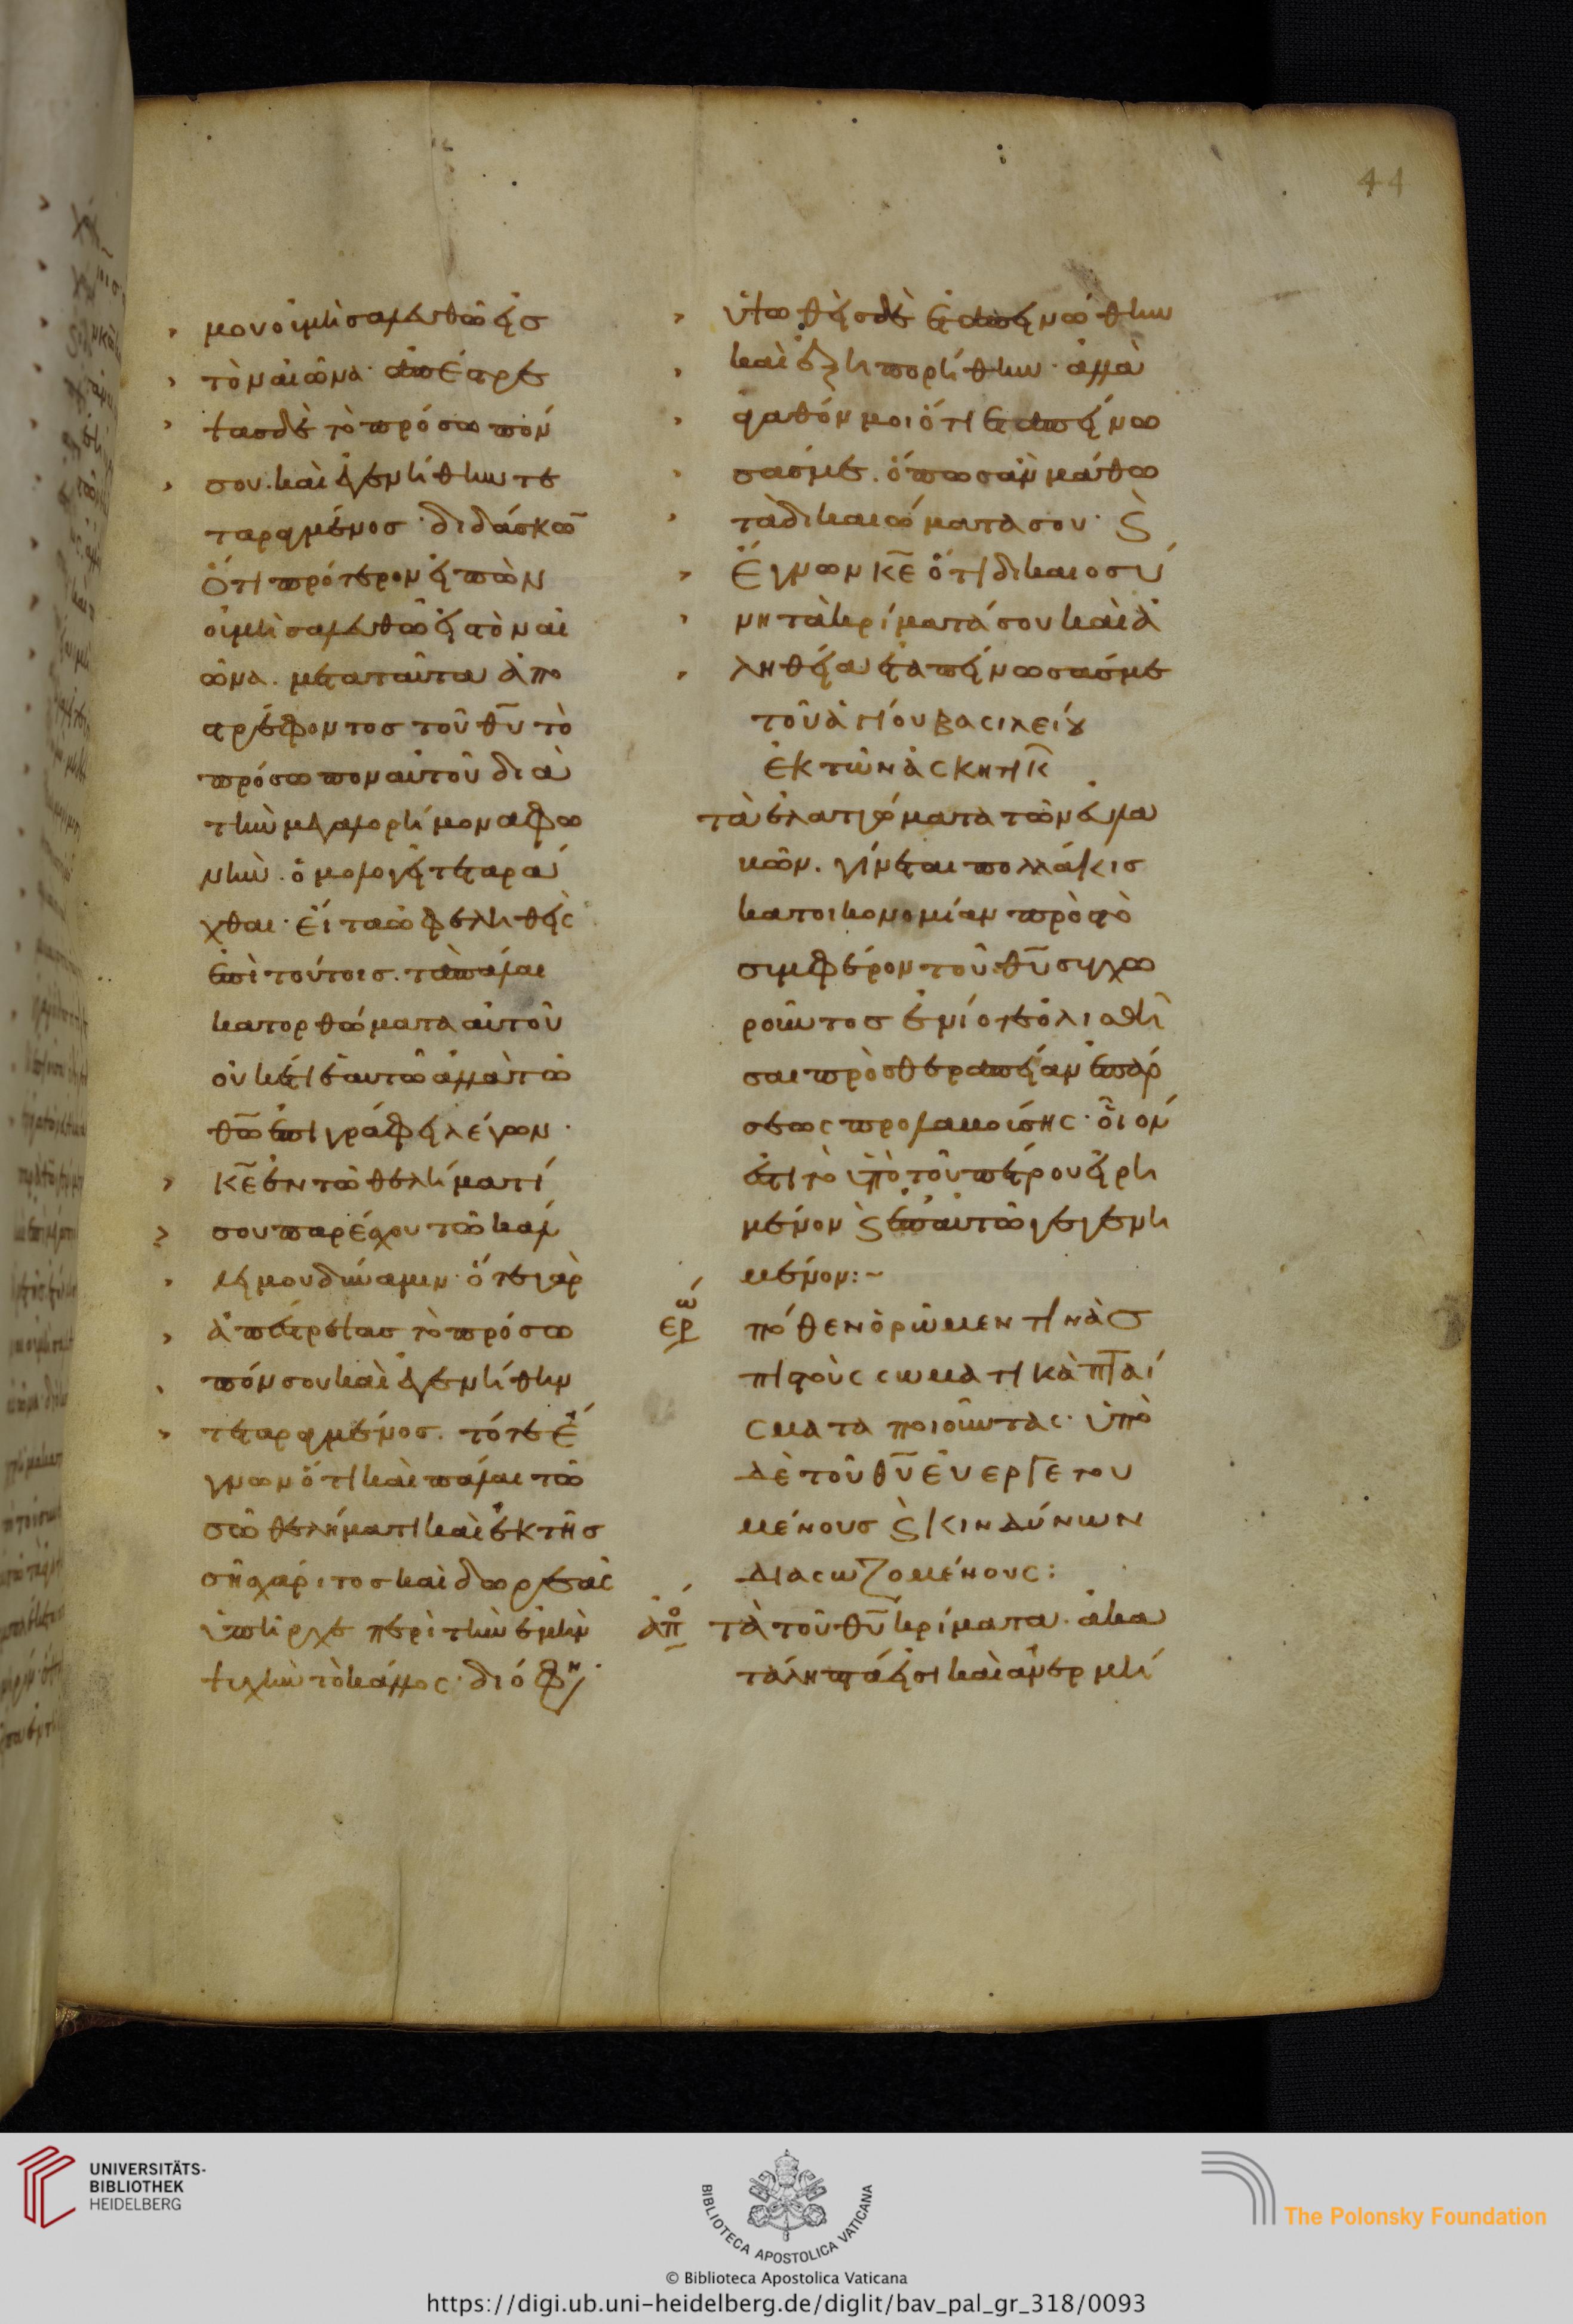 44
μου οὐ μὴ σαλευθῶ εἰσ
τὸν αἰῶνα· ἀπέστρε
ψασ δὲ τὸ πρόσωπόν
σου. καὶ ἐγενήθην τε
ταραγμένοσ· διδάσκω
Ὅτι πρότερον εἰπὼν
οὐ μὴ σαλευθῶ εἰσ τὸν αἰ
ῶνα. μετὰ ταῦτα ἀπο
στρέφοντοσ τοῦ θῡ τὸ
πρόσωπον αὐτοῦ διὰ
τὴν μεγαλορήμονα φω
νὴν. ὁμολογεῖ τεταρά
χθαι· εἶτα ὠφεληθεὶς
ἐπὶ τούτοισ. τὰ πάλαι
κατορθώματα αὐτοῦ
οὐκέτι ἑαυτῶ ἀλλὰ τῶ
θῶ ἐπιγράφει λέγων·
κε̄ ἐν τῶ θελήματί
σου παρέσχου τῶ κάλ
λει μου δύναμιν· ὅτε γὰρ
ἀπέστρεψασ τὸ πρόσω
πόν σου καὶ ἐγενήθην
τεταραγμένοσ. τότε ἔ
γνων ὅτι καὶ πάλαι τῶ
σῶ θελήματι καὶ ἐκ τῆσ
σῆσ χάριτοσ καὶ δωρεᾶς
ὑπῆρχε περὶ τὴν ἐμὴν
ψυχὴν τὸ κάλλος· διό φη·
ὑψωθεὶσ δὲ ἐταπεινώθην
καὶ ἐξηπορήθην· ἀλλὰ
ἀγαθόν μοι ὅτι ἐταπείνω
σασ με. ὅπωσ ἂν μάθω
τὰ δικαιώματα σου· Ϛ̀
Ἔγνων κε̄ ὅτι δικαιοσύ
νη τὰ κρίματά σου καὶ ἀ
ληθεία ἐταπείνωσασ με
τοῦ ἁγίου βασιλείου
ἐκ τῶν ἀσκητικ
τὰ ἐλαττώματα τῶν
κῶν. γίνεται πολλάκισ
κατ οικονομίαν πρὸσ τὸ
συμφέρον τοῦ θῡ συγχω
ροῦντοσ
σαι πρὸσ θεραπείαν ἐπάρ
σεως προλαβούσης· οἷον
ἐστὶ τὸ ὑπὸ τοῦ πέτρου εἰρη
μένον Ϛ̀ ἐπ αυτῶ γεγενη
μένον:~
ερω πόθεν ὁρῶμεν τινὰσ
πιστοὺς σωματικὰ πταί
σματα ποιοῦντας· ὑπὸ
δὲ τοῦ θῡ εὐεργετου
μένουσ Ϛ̀ κινδύνων
διασωζομένους:
ἀπο τὰ τοῦ θῡ κρίματα. ἀκα
τάληπτά εἰσι καὶ ἀνερμή
UNIVERSITÄTS-
BIBLIOTHEK
HEIDELBERG
BIBLIOTECA APOSTOLICA VATICANA
The Polonsky Foundation
© Biblioteca Apostolica Vaticana
https://digi.ub.uni-heidelberg.de/diglit/bav_pal_gr_318/0093